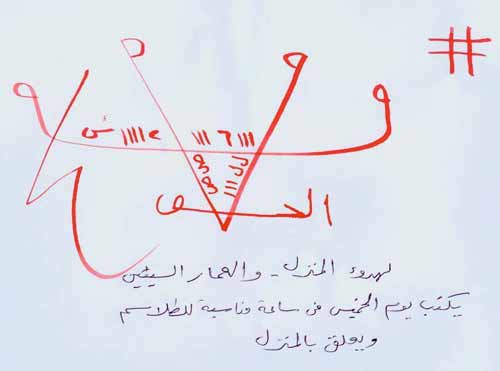 الحق
لهدوء المنزل - والعمار السيئين
يكتب يوم الخميس في ساعة مناسبة للطلاسم
ويعلق بالمنزل